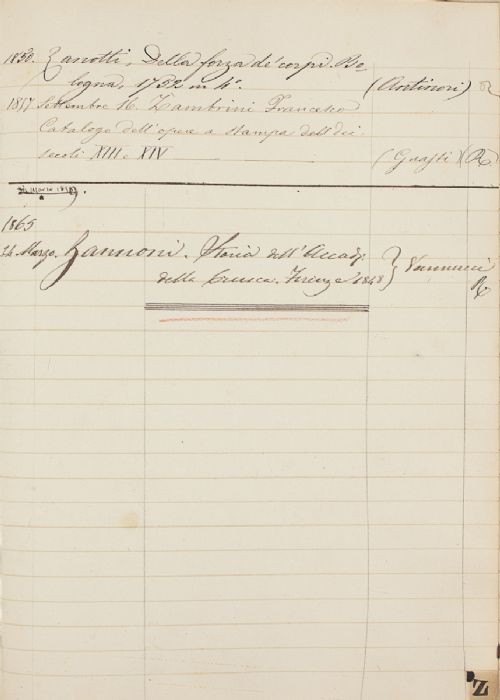 1850. Zanotti, Della forza de' corpi. Bo-
logna, 1752 in 4°. (Antinori)
1857 Settembre 16 Zambrini Francesco
Catalogo dell'opere a stampa dell dei
secoli XIII e XIV (Guasti) R.
1865
24. Marzo. Zannoni. Storia dell'Accad.
della Crusca. Firenze 1848 } Vannucci
R.
Z